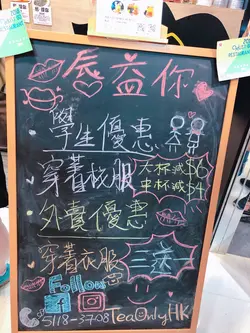 辰益你
學生優惠
穿着校服 大杯減$6
中杯減$4
外賣優惠
穿着衣服 三送一
Follow
5118-3708 TeaOnlyHK